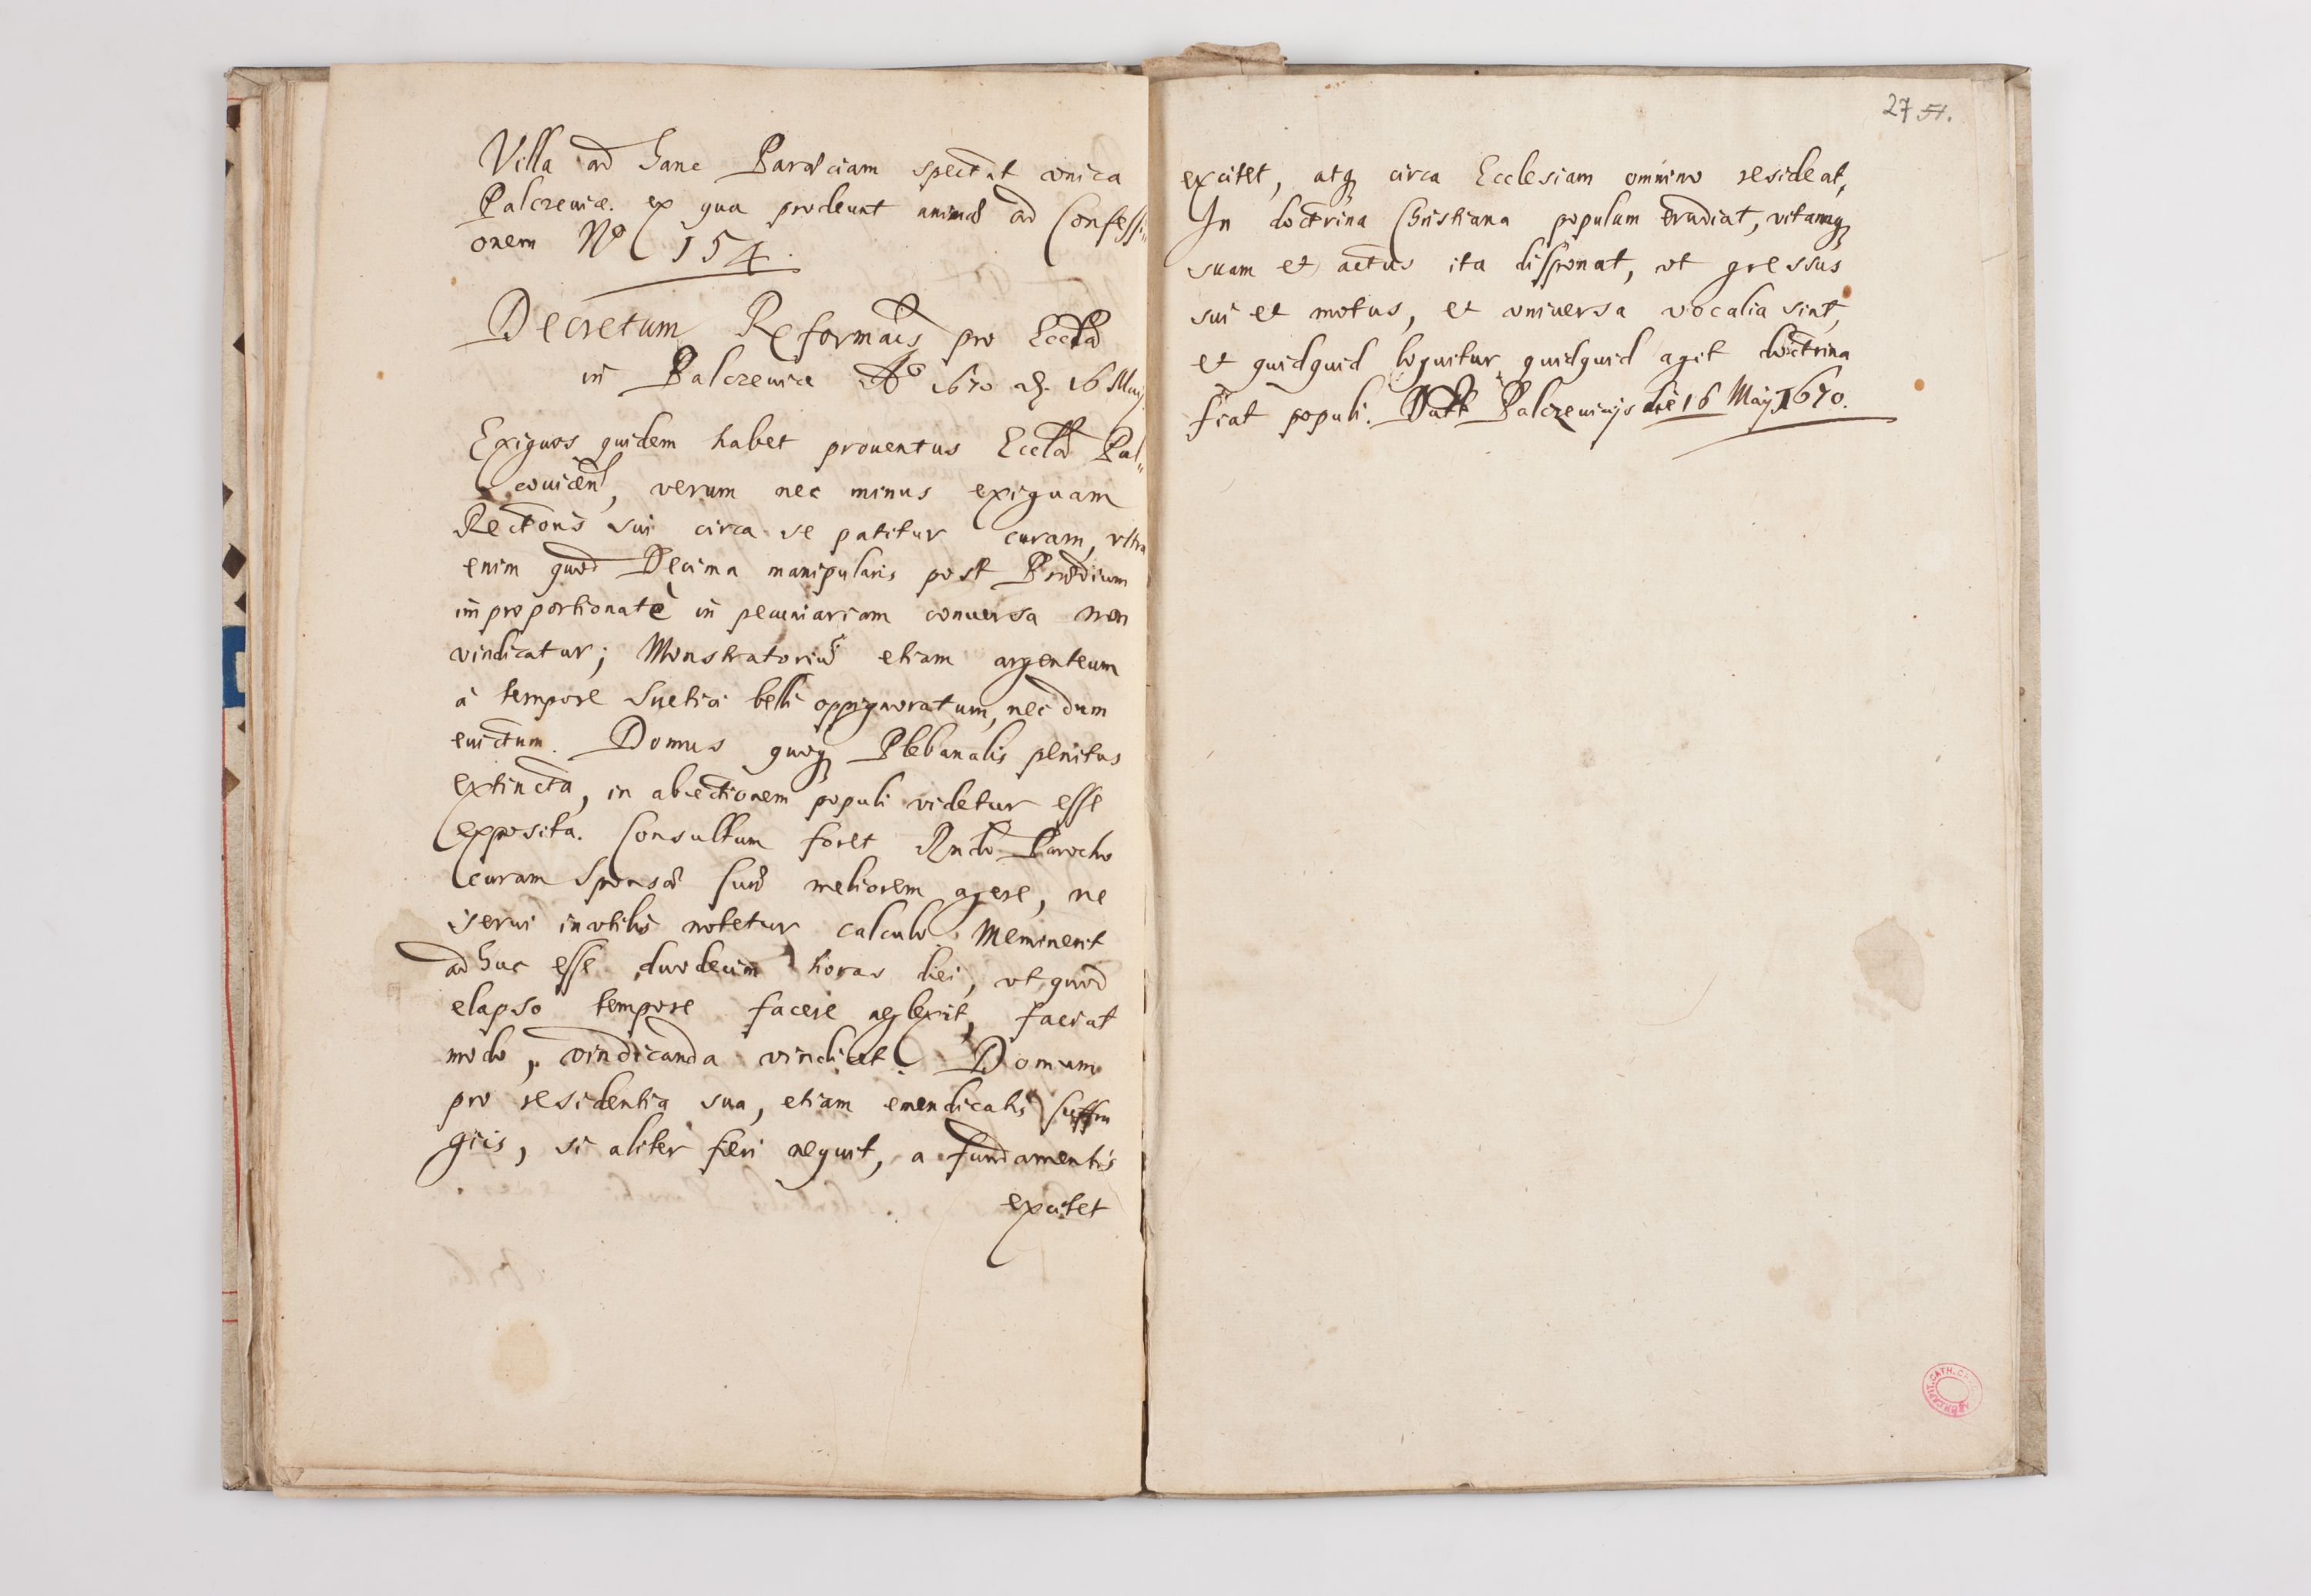 Villa ad hanc Parociam spectat vnica
Palczewice. ex qua prodeunt animæ ad Confessi„
onem No 154.
Decretum Reformatis pro Eccla
in Palczewice Ao 1670 d. 16 Maij
Exiguos quidem habet prouentus Eccla Pal„
covicen, verum nec minus exiguam
Rectoris sui circa se patitur curam, vltra
enim quod Decima manipularis post Prædium
improportionatè in pecuniariam conuersa non
vindicatur; Monstratoriu etiam argenteum
à tempore Suetici belli oppignoratum, nec dum
euictum. Domus quoq Plebanalis penitus
extincta, in abiectionem populi videtur esse
exposita. Consultum foret Rndo Parocho
curam Sponsæ suæ meliorem agere, ne
serui inutilis notetur calculo. Meminerit
ad huc esse duodecim horas diei, vt quod
elapso tempore facere neglexit, faciat
modo, vindicanda vindicet. Domum
pro residentia sua, etiam emendicatis suffra
giis, si aliter fieri nequit, a fundamentis
excitet
27 51.
excitet, atq circa Ecclesiam omnino resideat,
In doctrina Christiana populum erudiat, vitamq
suam et actus ita disponat, vt gressus
sui et motus, et vniuersa vocalia sint,
et quidquid loquitur quidquid agit doctrina
fiat populi. Datt Palczewicijs die 16 Maij 1670.